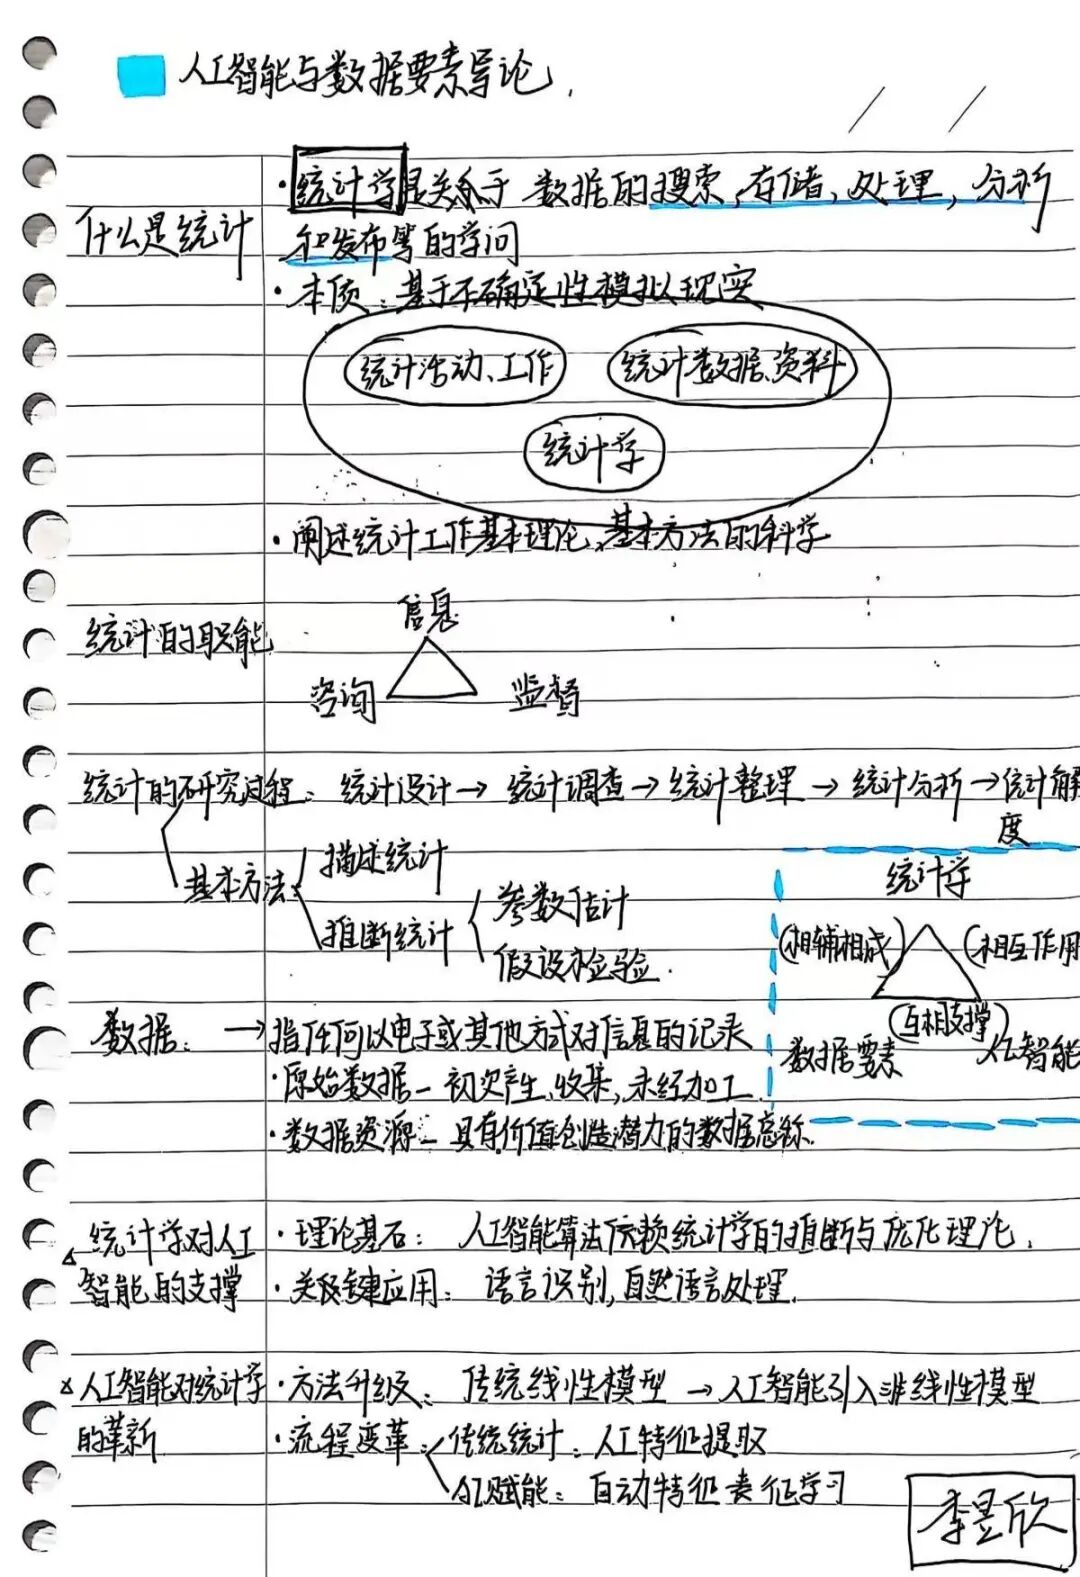 人工智能与数据要素导论
什么是统计
·统计学是关于 数据的搜索,存储,处理,分析
和发布等的学问
·本质:基于不确定性模拟现实
统计活动、工作
统计数据、资料
统计学
·阐述统计工作基本理论、基本方法的科学
统计的职能
信息
咨询
监督
统计的研究过程: 统计设计→统计调查→统计整理→统计分析→统计解
度
基本方法
描述统计
推断统计
参数估计
假设检验.
统计学
(相辅相成)
(相互作用
(互相支撑)
数据要素
人工智能
数据: →指任何以电子或其他方式对信息的记录
·原始数据—初次产生、收集,未经加工.
·数据资源—具有价值创造潜力的数据总称.
统计学对人工
智能的支撑
·理论基石: 人工智能算法依赖统计学的推断与优化理论.
·关键应用: 语言识别,自然语言处理.
×人工智能对统计学
的革新
·方法升级: 传统线性模型 →人工智能引入非线性模型
·流程变革:
传统统计:人工特征提取
AI赋能:自动特征表征学习
李昱欣